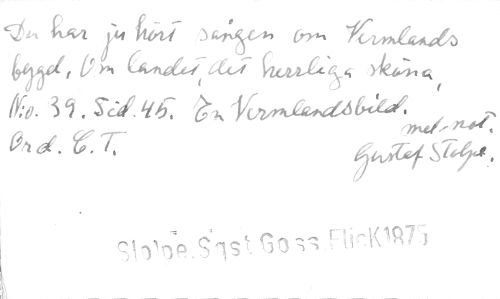 Du har ju hört sången om Vermlands
bygd, Om landet, det herrliga sköna,
No. 39. Sid. 45. En Vermlandsbild.
mel-not.
Ord. C. T. Gustaf Stolpe.
Stolpe. Sgst Goss. Flick 1875